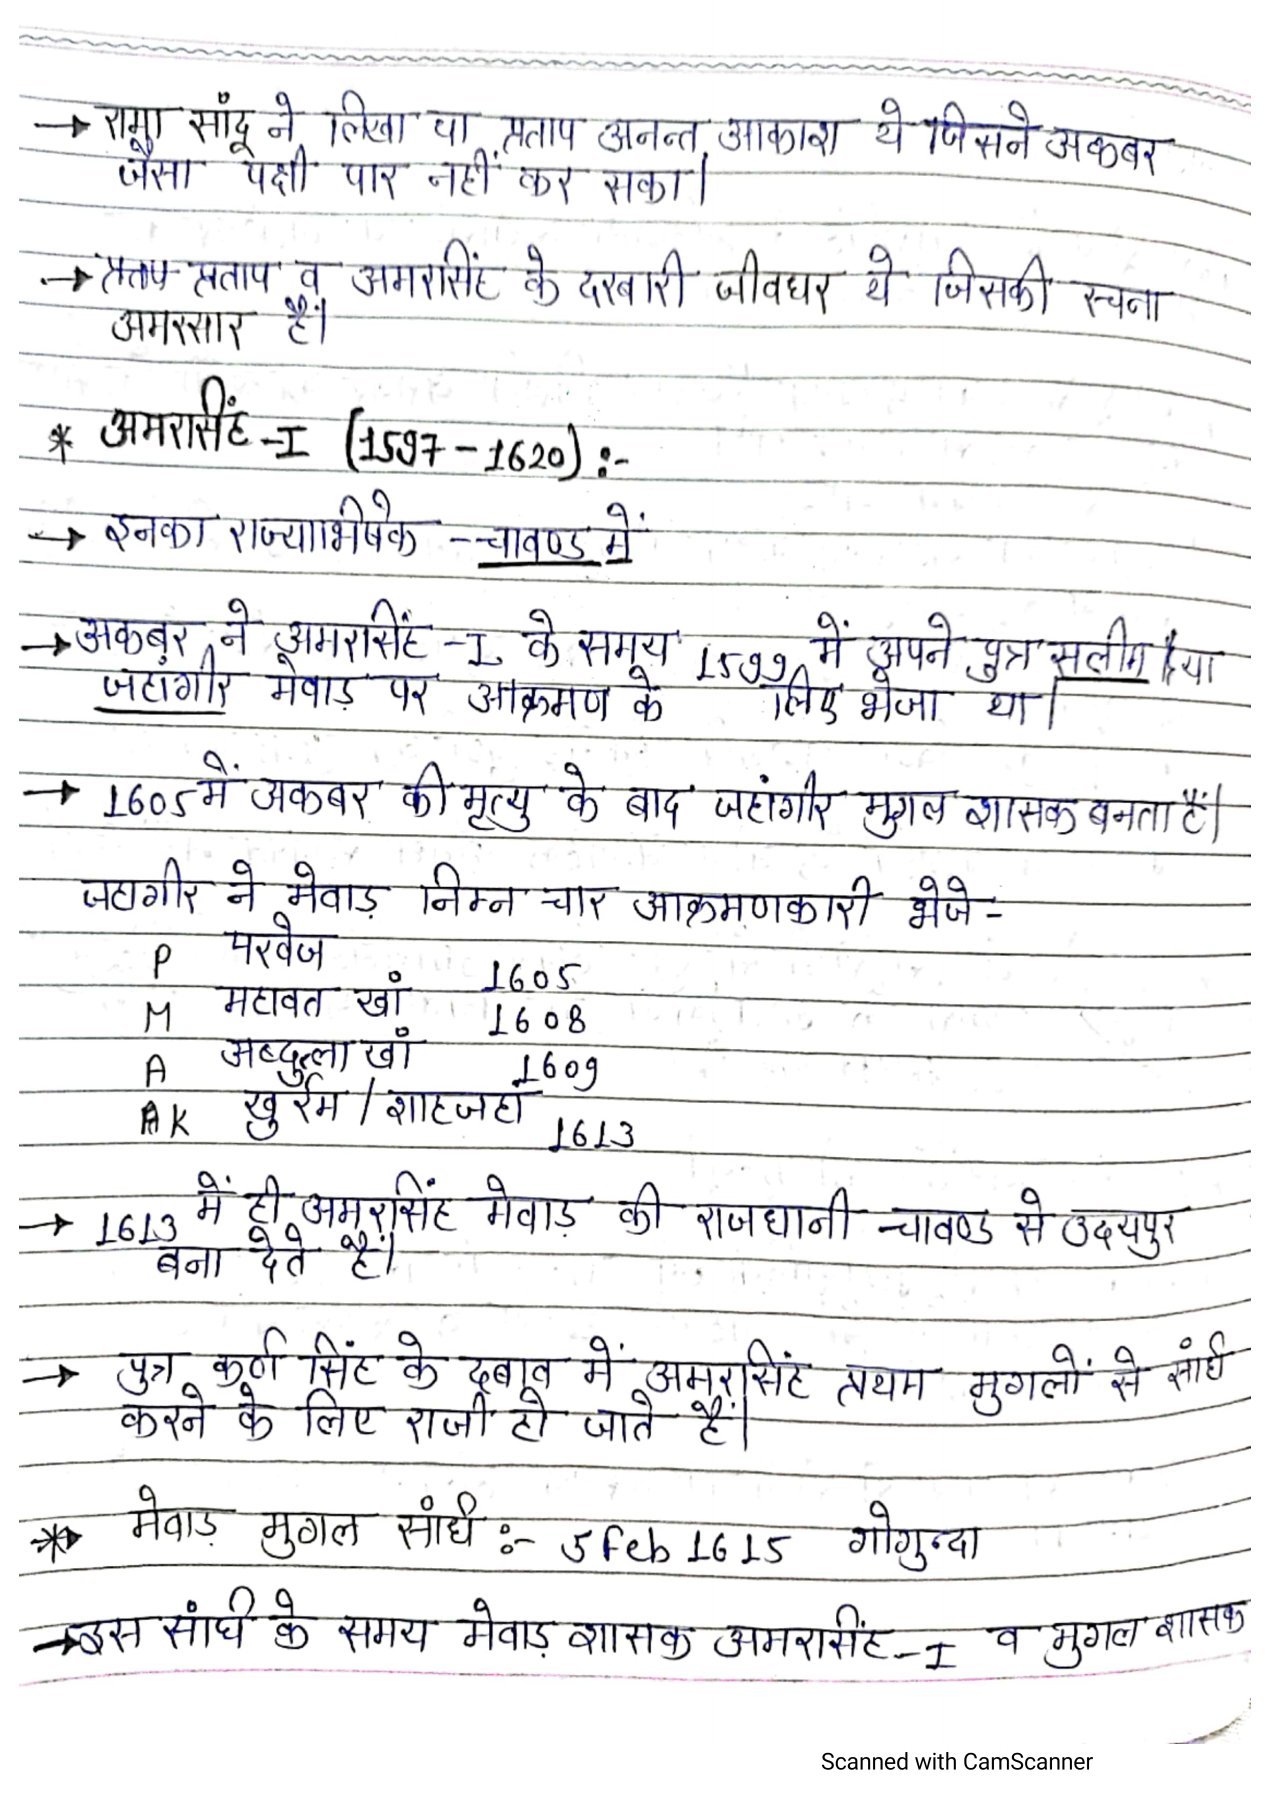 → रामा सांदू ने लिखा था प्रताप अनन्त आकाश थे जिसने अकबर
जैसा पक्षी पार नहीं कर सका।
→ प्रताप व अमरसिंह के दरबारी जीवधर थे जिसकी रचना
अमरसार है।
* अमरसिंह -I (1597 - 1620) :-
→ इनका राज्याभिषेक - चावण्ड में
→ अकबर ने अमरसिंह -I के समय 1599 में अपने पुत्र सलीम या
जहांगीर मेवाड़ पर आक्रमण के लिए भेजा था।
→ 1605 में अकबर की मृत्यु के बाद जहांगीर मुगल शासक बनता है।
जहागीर ने मेवाड़ निम्न चार आक्रमणकारी भेजे -
P परवेज 1605
M महावत खां 1608
A अब्दुल्ला खां 1609
K खुर्रम / शाहजहां 1613
→ 1613 में ही अमरसिंह मेवाड़ की राजधानी चावण्ड से उदयपुर
बना देते है।
→ पुत्र कर्ण सिंह के दबाव में अमरसिंह प्रथम मुगलों से संधि
करने के लिए राजी हो जाते हैं।
* मेवाड़ मुगल संधि :- 5 Feb 1615 गोगुन्दा
→ इस संधि के समय मेवाड़ शासक अमरसिंह -I व मुगल शासक
Scanned with CamScanner